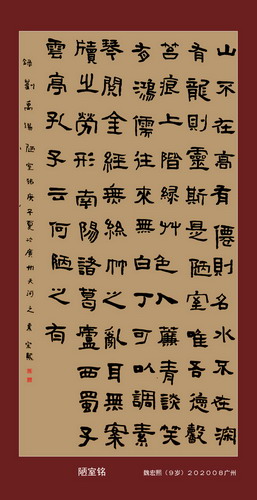 山不在高有僊則名水不在深
有龍則靈斯是陋室唯吾德馨
苔痕上階綠艸色入簾青談笑
有鴻儒往來無白丁可以調素
琴閱金經無絲竹之亂耳無案
牘之勞形南陽諸葛廬西蜀子
雲亭孔子云何陋之有
錄劉禹錫陋室銘庚子夏於廣州天河之宏熙
陋室铭
魏宏熙（9岁）202008广州